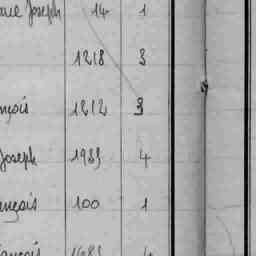 Joseph 14 1
1218 3
nçois 1212 3
Joseph 1983 4
nçois 100 1